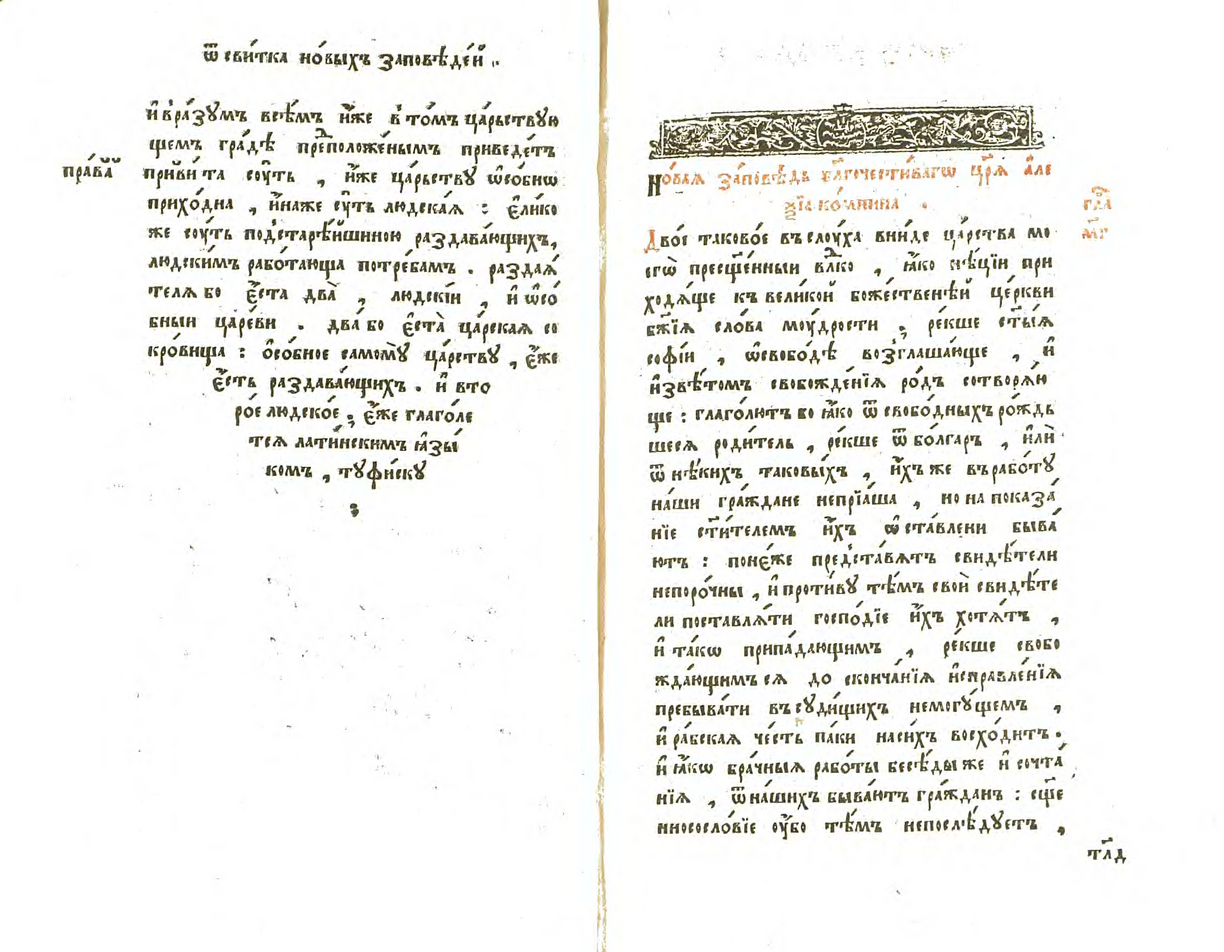 ѿ сви́тка но́выхъ заповѣ́де́й .
и҆ вра́зꙋмъ всѣ́мъ и҆́же в то́мъ ца́рьствꙋю
щемъ гра́дѣ преположе́нымъ приведе́тъ
пра́ва
приви́та сꙋ́ть , и҆́же ца́рьствꙋ ѡ҆со́бнѡ
прихо́дна , и҆́наже сꙋ́ть людска́ѧ : є҆ли́ко
же сꙋ́ть подстарѣ́йшиною раздава́ющихъ,
людски́мъ рабо́тающа потре́бамъ . раздаѧ́
телѧ бо є҆́ста два̀ , людскі́и , и҆ ѡ҆со́
бныи царе́ви . два́ бо є҆ста̀ ца́рскаѧ со
кро́вища : ѻ҆со́бное самомꙋ̀ ца́рствꙋ , є҆́же
є҆́сть раздава́ющихъ . и҆ вто
ро́е людско́е , є҆́же глаго́ле
тсѧ лати́нскимъ ꙗ҆зы́
комъ , тꙋфі́скꙋ
но́ваѧ за́повѣдь бл҃гочести́вагѡ цр҃ѧ̀ а҆ле
ѯі́а ко́мнина .
гла̀
м҃г
Дво́е таково́е въ слꙋ́ха вни́де ца́рства мо
егѡ̀ пресщ҃е́нныи влⷣко , ꙗ҆́ко нѣ́цїи при
ходѧ́ще къ вели́кой боже́ственѣй це́ркви
бж҃їѧ сло́ва мꙋ́дрости , ре́кше ст҃ы́ѧ
софі́и , ѡ҆свобо́дѣ возглаша́юще , и҆
и҆звѣ́томъ свобожде́нїѧ ро́дъ сотворѧ́ю
ще : глаго́лютъ бо ꙗ҆́ко ѿ свобо́дныхъ ро́ждь
шеесѧ роди́тель , ре́кше ѿ бо́лгаръ , и҆лѝ
ѿ нѣ́кихъ таковы́хъ , и҆́хъ же въ рабо́тꙋ
на́ши гра́ждане непрїѧ́ша , но на показа́
нїе ст҃и́телемъ и҆́хъ ѡ҆ста́влени быва́
ютъ : поне́же предста́вѧтъ свидѣ́тели
непоро́чны , и҆ проти́вꙋ тѣ́мъ свой свидѣ́те
ли поставлѧ́ти госпо́дїе и҆́хъ хотѧ́тъ ,
и҆ та́кѡ припа́дающимъ , ре́кше свобо
жда́ющимъсѧ до сконча́нїѧ и҆справле́нїѧ
пребыва́ти въ сꙋди́щихъ немогꙋ́щемъ ,
и҆ ра́бскаѧ че́сть па́ки на си́хъ восхо́дитъ .
и҆ ꙗ҆́кѡ бра́чныѧ рабо́ты бесѣ́ды же и҆ сочта́
нїѧ , ѿ на́шихъ быва́ютъ гра́жданъ : сще
нносло́вїе ᲂу҆́бо тѣ́мъ непослѣ́дꙋетъ ,
тл҃д